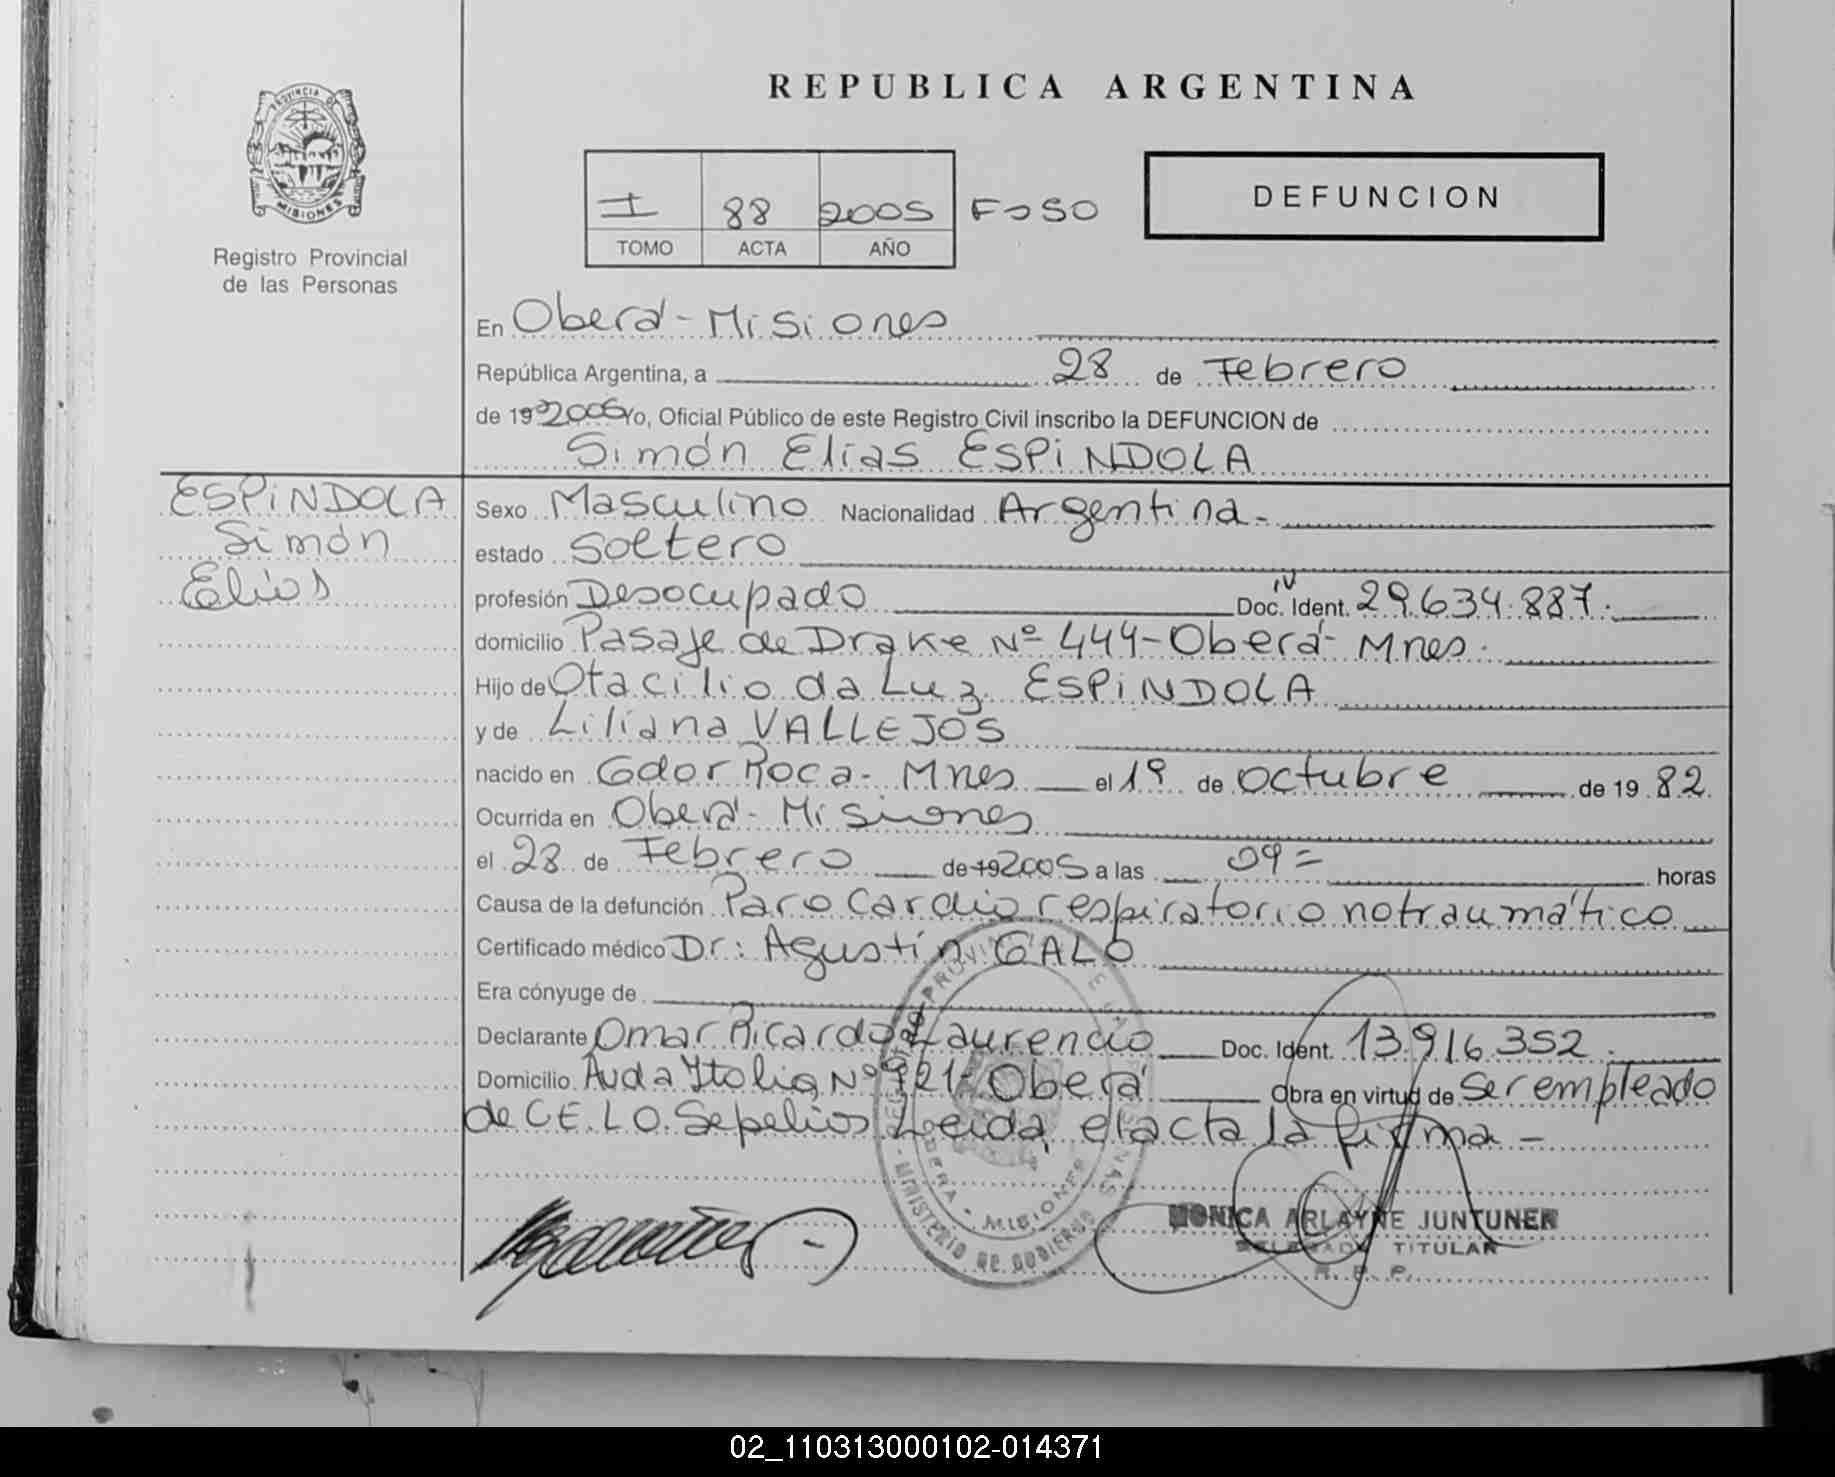 REPUBLICA ARGENTINA
PROVINCIA DE
MISIONES
Registro Provincial
de las Personas
I 88 2005 Fo 50
TOMO ACTA AÑO
DEFUNCION
En Oberá - Misiones
República Argentina, a 28 de Febrero
de 19 2005 Yo, Oficial Público de este Registro Civil inscribo la DEFUNCION de
Simón Elias ESPiNDOLA
ESPiNDOLA
Simón
Elias
Sexo Masculino Nacionalidad Argentina -
estado Soltero
profesión Desocupado Doc. Ident. 29.634.887.
domicilio Pasaje de Drake Nº 444 - Oberá - Mnes.
Hijo de Otacilio da Luz ESPiNDOLA
y de Liliana VALLEJOS
nacido en Gdor Roca - Mnes el 1º de octubre de 19 82.
Ocurrida en Oberá - Misiones
el 28 de Febrero de 19 2005 a las 09 = horas
Causa de la defunción Paro Cardio respiratorio no traumático
Certificado médico Dr: Agustín GALO
Era cónyuge de
Declarante Omar Ricardo Laurencio Doc. Ident. 13.916.352.
Domicilio Avda Italia, Nº 921 - Oberá Obra en virtud de Ser empleado
de C.E.L.O. Sepelios Leida el acta la firma -
MINISTERIO DE GOBIERNO
OBERA - MISIONES
MONICA ARLAYNE JUNTUNEN
DELEGADA TITULAR
R. P. P.
02_110313000102-014371